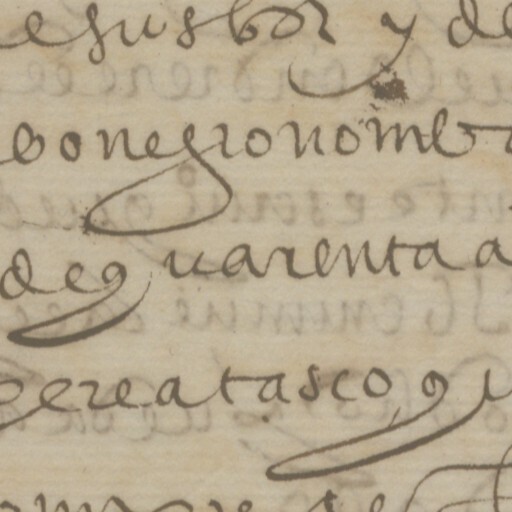 esusbor y de
bo negro nomb
de quarenta a
pere a tasco qu